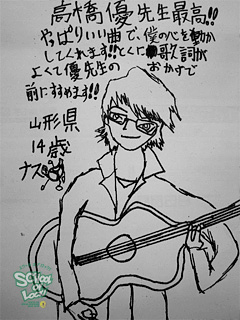 高橋優先生最高!!
やっぱりいい曲で、僕の心を動か
してくれます!!とくに歌詞が
よくて優先生の おかずで
前にすすめます!!
山形県
14歳
ナス
SCHOOL
OF
LOCK!